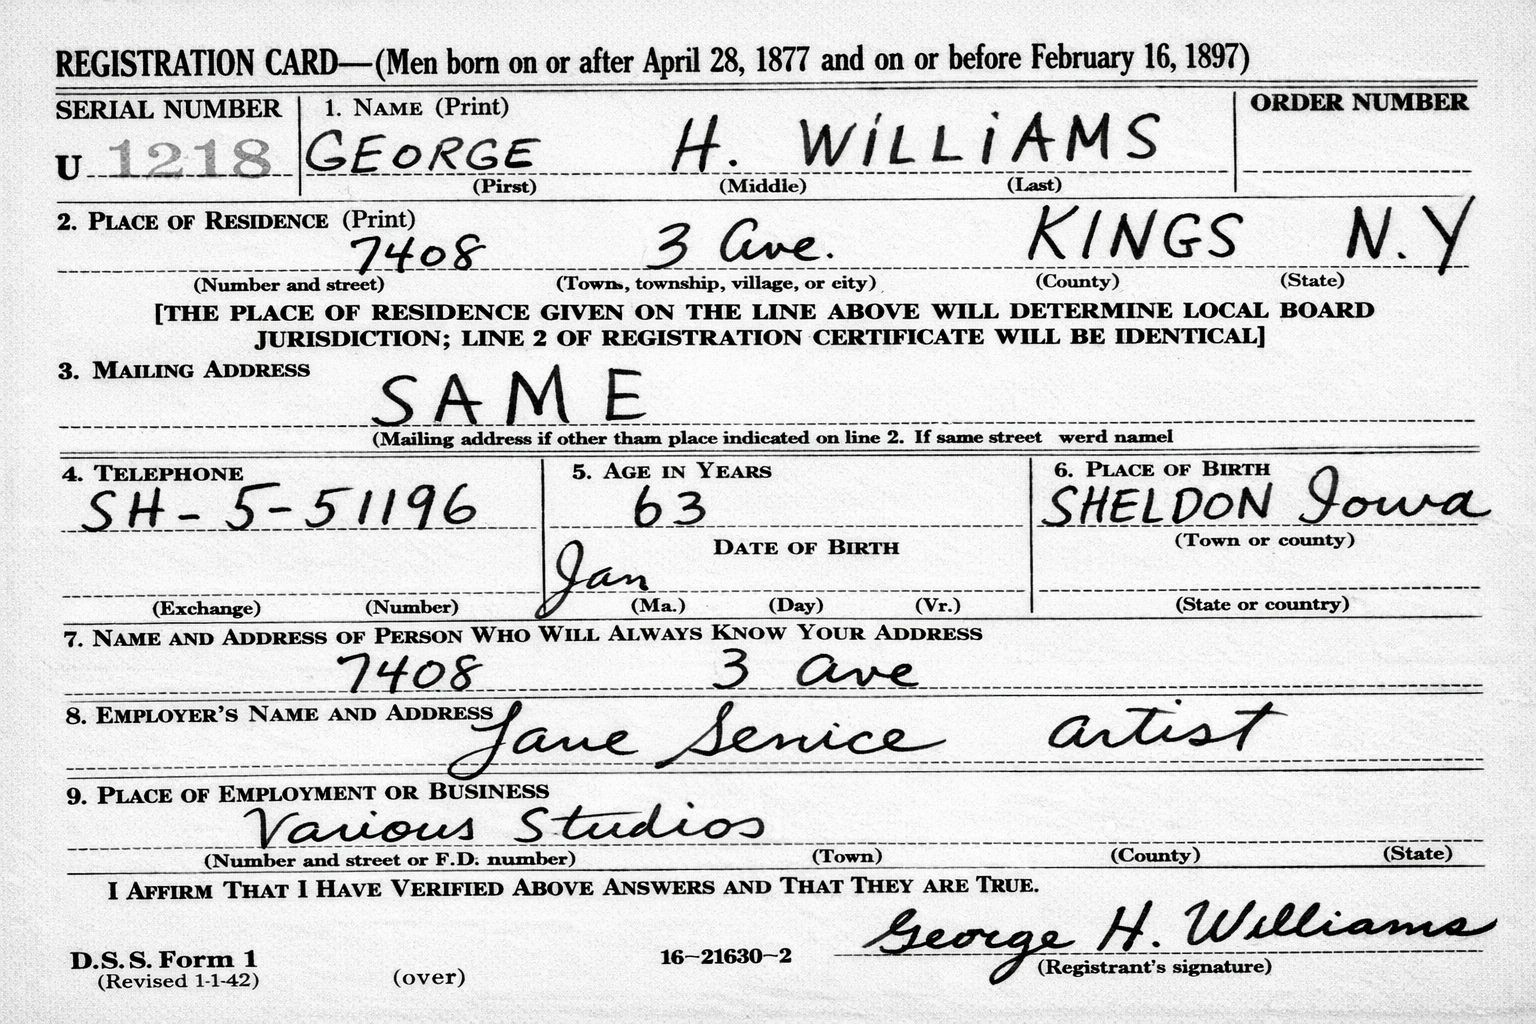 REGISTRATION CARD—(Men born on or after April 28, 1877 and on or before February 16, 1897)
SERIAL NUMBER 1. NAME (Print) ORDER NUMBER
U 1218 GEORGE H. WILLIAMS
(First) (Middle) (Last)
2. PLACE OF RESIDENCE (Print)
7408 3 Ave. KINGS N.Y
(Number and street) (Town, township, village, or city) (County) (State)
[THE PLACE OF RESIDENCE GIVEN ON THE LINE ABOVE WILL DETERMINE LOCAL BOARD
JURISDICTION; LINE 2 OF REGISTRATION CERTIFICATE WILL BE IDENTICAL]
3. MAILING ADDRESS
SAME
(Mailing address if other tham place indicated on line 2. If same street werd namel
4. TELEPHONE 5. AGE IN YEARS 6. PLACE OF BIRTH
SH-5-51196 63 SHELDON Iowa
DATE OF BIRTH (Town or county)
Jan
(Exchange) (Number) (Ma.) (Day) (Vr.) (State or country)
7. NAME AND ADDRESS OF PERSON WHO WILL ALWAYS KNOW YOUR ADDRESS
7408 3 Ave
8. EMPLOYER'S NAME AND ADDRESS
artist
9. PLACE OF EMPLOYMENT OR BUSINESS
Various Studios
(Number and street or F.D. number) (Town) (County) (State)
I AFFIRM THAT I HAVE VERIFIED ABOVE ANSWERS AND THAT THEY ARE TRUE.
George H. Williams
D.S.S. Form 1 16-21630-2 (Registrant's signature)
(Revised 1-1-42) (over)